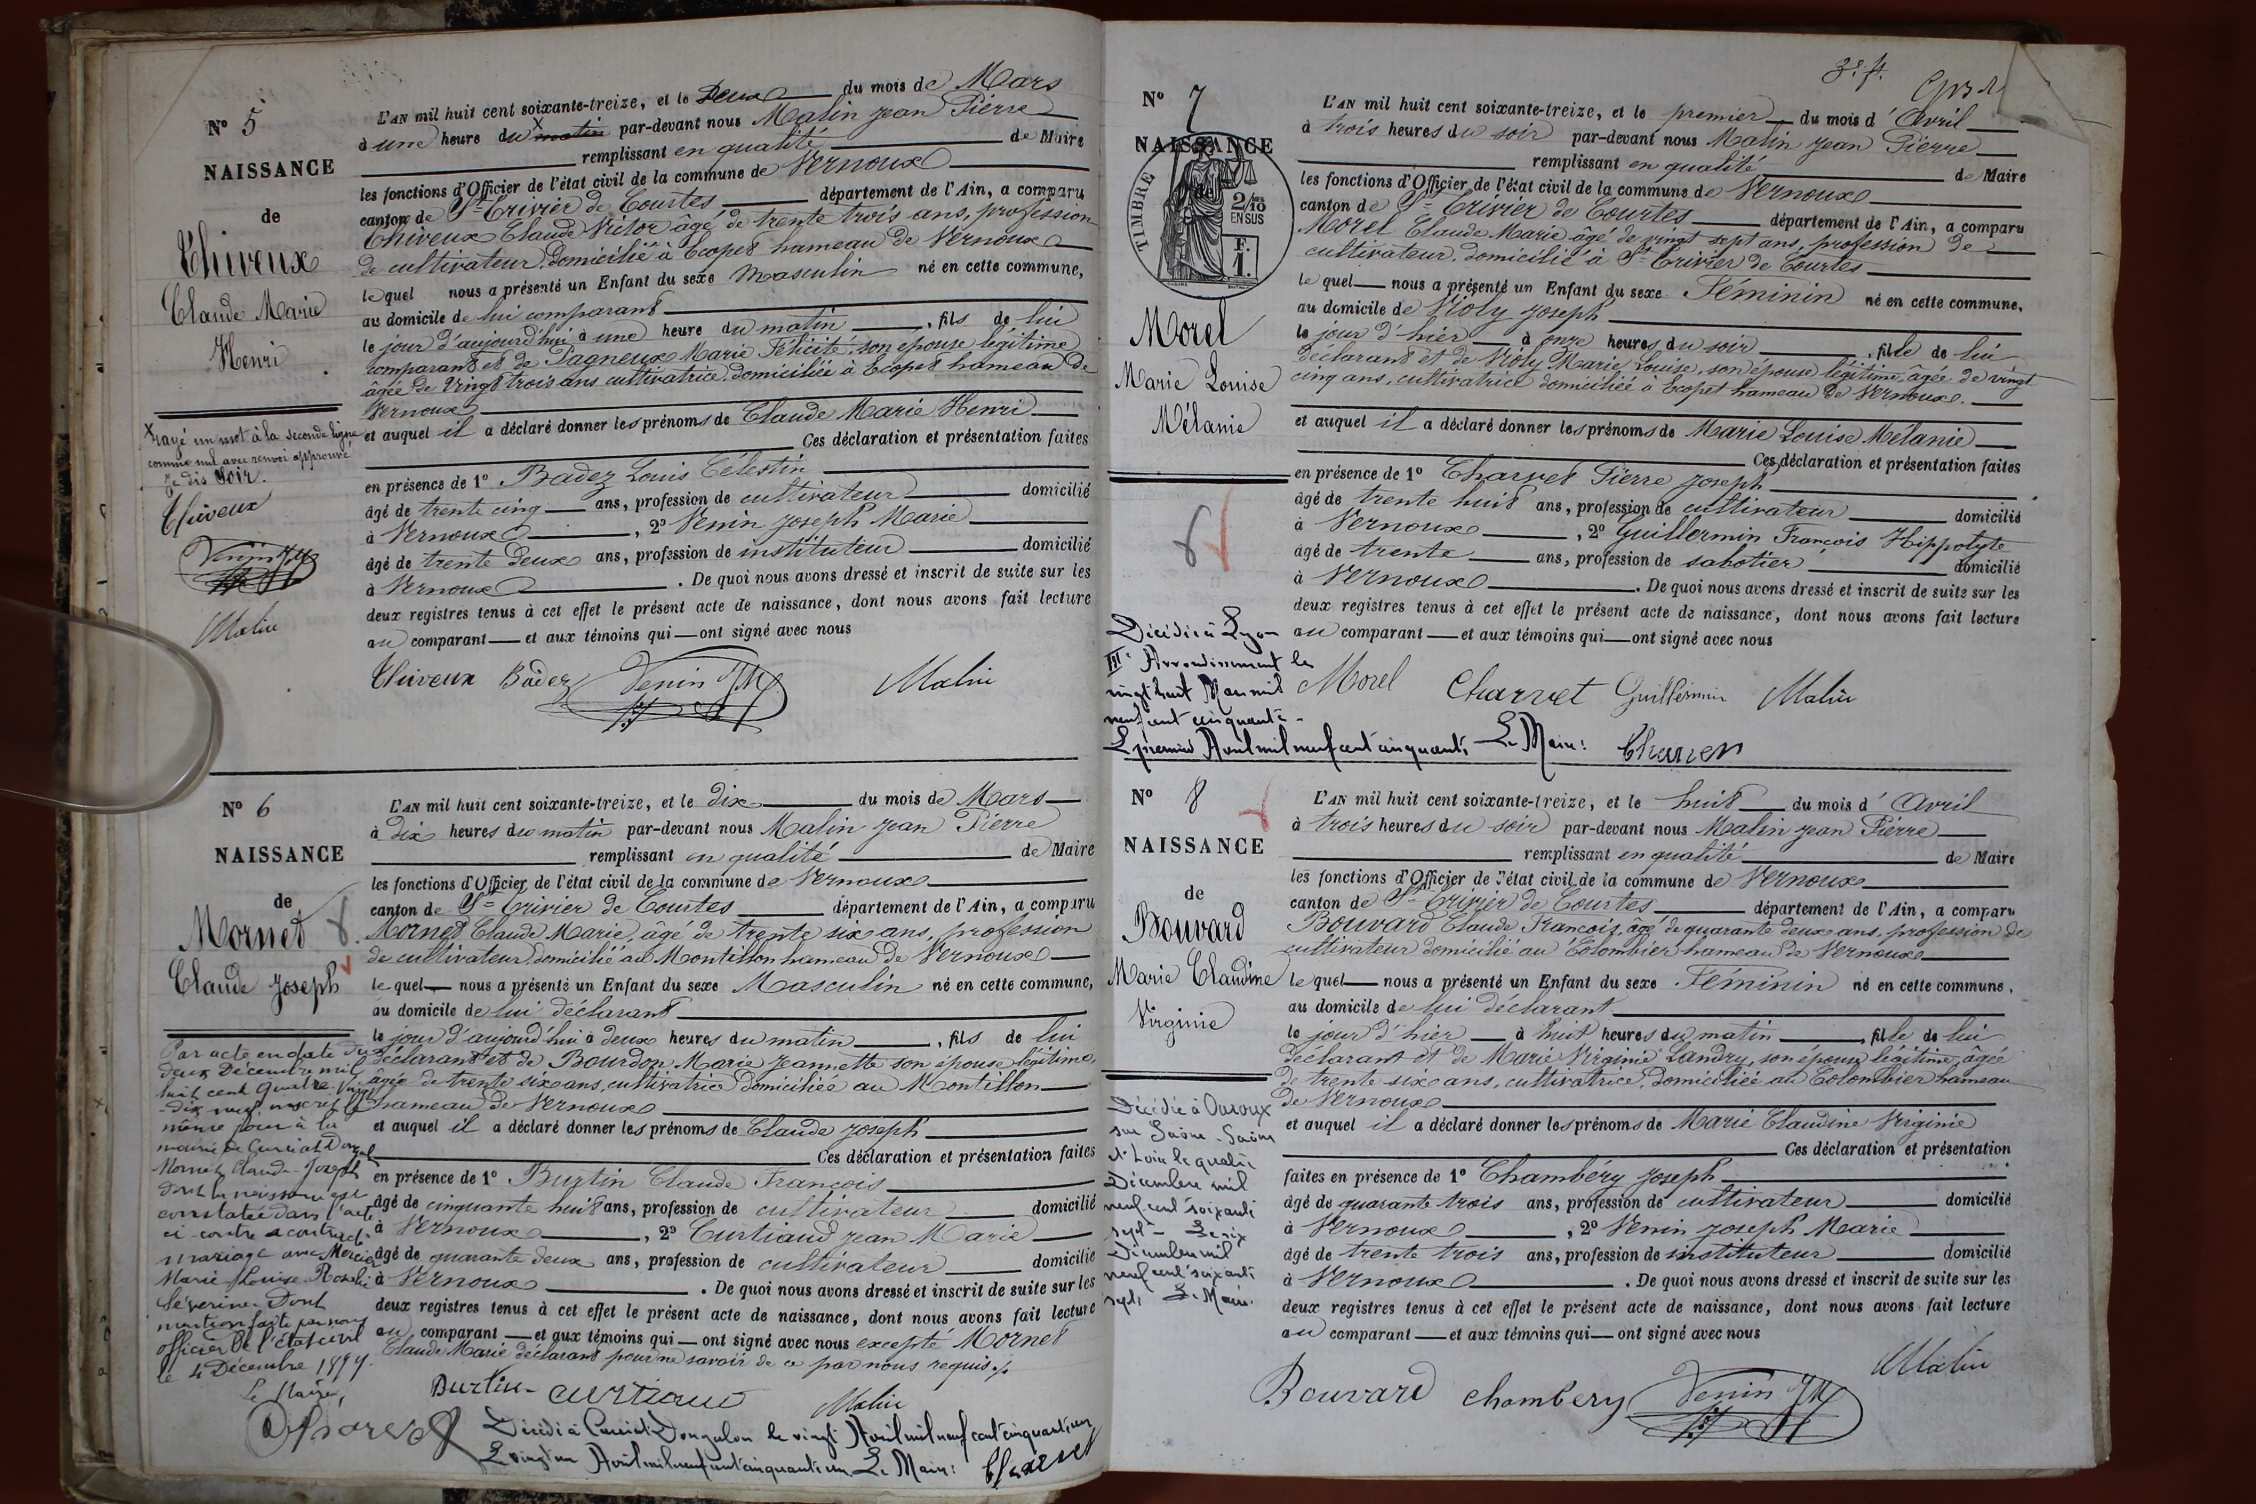 N° 5
NAISSANCE
de
Thiveux
Claude Marie
Henri
X rayé un mot à la seconde ligne
comme nul avec renvoi approuvé
Je dis Soir.
Thiveux
Venin JM
Malin
L'AN mil huit cent soixante-treize, et le Deux du mois de Mars
à une heure du X matin par-devant nous Malin Jean Pierre
remplissant en qualité de Maire
les fonctions d'Officier de l'état civil de la commune de Vernoux
canton de St Trivier de Courtes département de l'Ain, a comparu
Thiveux Claude Victor âgé de trente trois ans, profession
de cultivateur, domicilié à Ecopet hameau de Vernoux
lequel nous a présenté un Enfant du sexe Masculin né en cette commune,
au domicile de lui comparant
le jour d'aujourd'hui à une heure du matin, fils de lui
comparant et de Pagneux Marie Félicité, son épouse légitime
âgée de vingt trois ans cultivatrice, domiciliée à Ecopet hameau de
Vernoux
et auquel il a déclaré donner les prénoms de Claude Marie Henri
Ces déclaration et présentation faites
en présence de 1° Badez Louis Célestin
âgé de trente cinq ans, profession de cultivateur domicilié
à Vernoux, 2° Venin Joseph Marie
âgé de trente deux ans, profession de instituteur domicilié
à Vernoux. De quoi nous avons dressé et inscrit de suite sur les
deux registres tenus à cet effet le présent acte de naissance, dont nous avons fait lecture
au comparant et aux témoins qui ont signé avec nous
Thiveux Badez Venin JM Malin
N° 6
NAISSANCE
de
Mornet
Claude Joseph
Par acte en date du
deux Décembre mil
huit cent quatre-vingt
-dix neuf, inscrit le
même jour à la
mairie de Curciat Dongalon
Mornet Claude-Joseph
dont la naissance est
constatée dans l'acte
ci-contre a contracté
mariage avec Mercier
Marie Louise Rosalie
Séverine. Dont
mention faite par nous
officier de l'état civil
le 4 Décembre 1899.
Le Maire,
L'AN mil huit cent soixante-treize, et le dix du mois de Mars
à dix heures du matin par-devant nous Malin Jean Pierre
remplissant en qualité de Maire
les fonctions d'Officier de l'état civil de la commune de Vernoux
canton de St Trivier de Courtes département de l'Ain, a comparu
Mornet Claude Marie, agé de trente six ans, profession
de cultivateur, domicilié au Montillon hameau de Vernoux
lequel nous a présenté un Enfant du sexe Masculin né en cette commune,
au domicile de lui déclarant
le jour d'aujourd'hui à deux heures du matin, fils de lui
déclarant et de Bourdon Marie Jeannette son épouse légitime,
âgée de trente six ans, cultivatrice domiciliée au Montillon
hameau de Vernoux
et auquel il a déclaré donner les prénoms de Claude Joseph
Ces déclaration et présentation faites
en présence de 1° Burtin Claude François
âgé de cinquante huit ans, profession de cultivateur domicilié
à Vernoux, 2° Curtiaud Jean Marie
âgé de quarante deux ans, profession de cultivateur domicilié
à Vernoux. De quoi nous avons dressé et inscrit de suite sur les
deux registres tenus à cet effet le présent acte de naissance, dont nous avons fait lecture
au comparant et aux témoins qui ont signé avec nous excepté Mornet
Claude Marie déclarant pour ne savoir de ce par nous requis.
Burtin Curtiaud Malin
Décédé à Curciat Dongalon le vingt Avril mil neuf cent cinquante un
Le vingt un Avril mil neuf cent cinquante un Le Maire: Charvet
3e f.
N° 7
NAISSANCE
de
TIMBRE
2/10 EN SUS
F. 1.
Morel
Marie Louise
Mélanie
Décédée à Lyon
IIIe Arrondissement le
vingt huit Mars mil
neuf cent cinquante
Le premier Avril mil neuf cent cinquante Le Maire: Charvet
L'AN mil huit cent soixante-treize, et le premier du mois d'Avril
à trois heures du soir par-devant nous Malin Jean Pierre
remplissant en qualité de Maire
les fonctions d'Officier de l'état civil de la commune de Vernoux
canton de St Trivier de Courtes département de l'Ain, a comparu
Morel Claude Marie âgé de vingt sept ans, profession de
cultivateur, domicilié à St Trivier de Courtes
lequel nous a présenté un Enfant du sexe Féminin né en cette commune,
au domicile de Violy Joseph
le jour d'hier à onze heures du soir, fille de lui
déclarant et de Violy Marie Louise, son épouse légitime, âgée de vingt
cinq ans, cultivatrice domiciliée à Ecopet hameau de Vernoux.
et auquel il a déclaré donner les prénoms de Marie Louise Mélanie
Ces déclaration et présentation faites
en présence de 1° Charvet Pierre Joseph
âgé de trente huit ans, profession de cultivateur domicilié
à Vernoux, 2° Guillermin François Hippolyte
âgé de trente ans, profession de sabotier domicilié
à Vernoux. De quoi nous avons dressé et inscrit de suite sur les
deux registres tenus à cet effet le présent acte de naissance, dont nous avons fait lecture
au comparant et aux témoins qui ont signé avec nous
Morel Charvet Guillermin Malin
N° 8
NAISSANCE
de
Bouvard
Marie Claudine
Virginie
Décédée à Ouroux
sur Saône - Saône
et Loire le quatre
Décembre mil
neuf cent soixante
sept - Le six
Décembre mil
neuf cent soixante
sept, Le Maire.
L'AN mil huit cent soixante-treize, et le huit du mois d'Avril
à trois heures du soir par-devant nous Malin Jean Pierre
remplissant en qualité de Maire
les fonctions d'Officier de l'état civil de la commune de Vernoux
canton de St Trivier de Courtes département de l'Ain, a comparu
Bouvard Claude François, âgé de quarante deux ans, profession de
cultivateur domicilié au Colombier hameau de Vernoux
lequel nous a présenté un Enfant du sexe Féminin né en cette commune,
au domicile de lui déclarant
le jour d'hier à huit heures du matin, fille de lui
déclarant et de Marie Virginie Landry, son épouse légitime, âgée
de trente six ans, cultivatrice, domiciliée au Colombier hameau
de Vernoux
et auquel il a déclaré donner les prénoms de Marie Claudine Virginie
Ces déclaration et présentation
faites en présence de 1° Chambéry Joseph
âgé de quarante trois ans, profession de cultivateur domicilié
à Vernoux, 2° Venin Joseph Marie
âgé de trente trois ans, profession de instituteur domicilié
à Vernoux. De quoi nous avons dressé et inscrit de suite sur les
deux registres tenus à cet effet le présent acte de naissance, dont nous avons fait lecture
au comparant et aux témoins qui ont signé avec nous
Bouvard Chambery Venin JM Malin